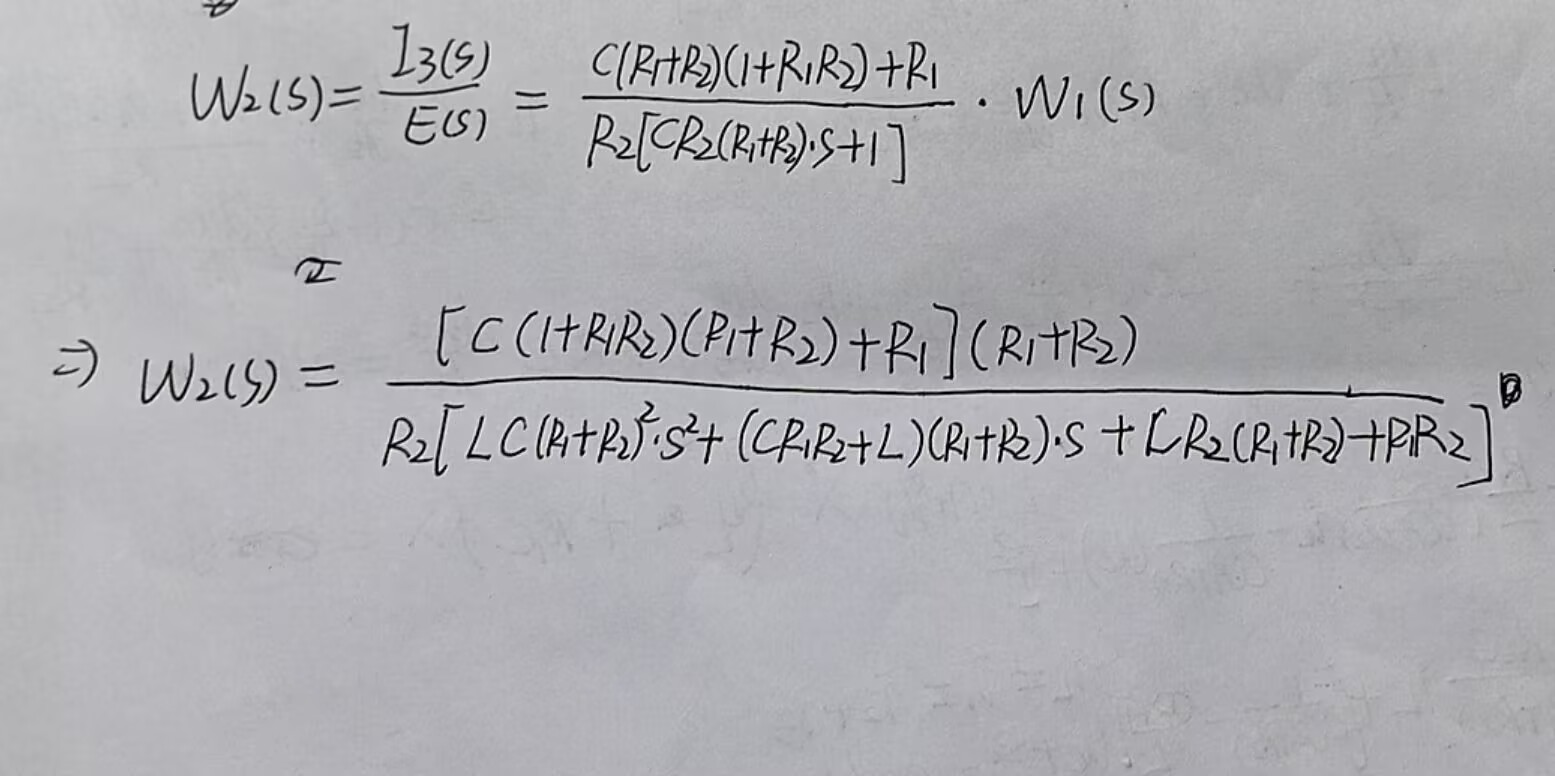 W₂(s) = I₃(s)/E(s) = C(R₁+R₂)(1+R₁R₂)+R₁ / R₂[CR₂(R₁+R₂)·s+1] · W₁(s)
⇒ W₂(s) = [C(1+R₁R₂)(R₁+R₂)+R₁](R₁+R₂) / R₂[LC(R₁+R₂)²·s²+(CR₁R₂+L)(R₁+R₂)·s+LR₂(R₁+R₂)+R₁R₂]